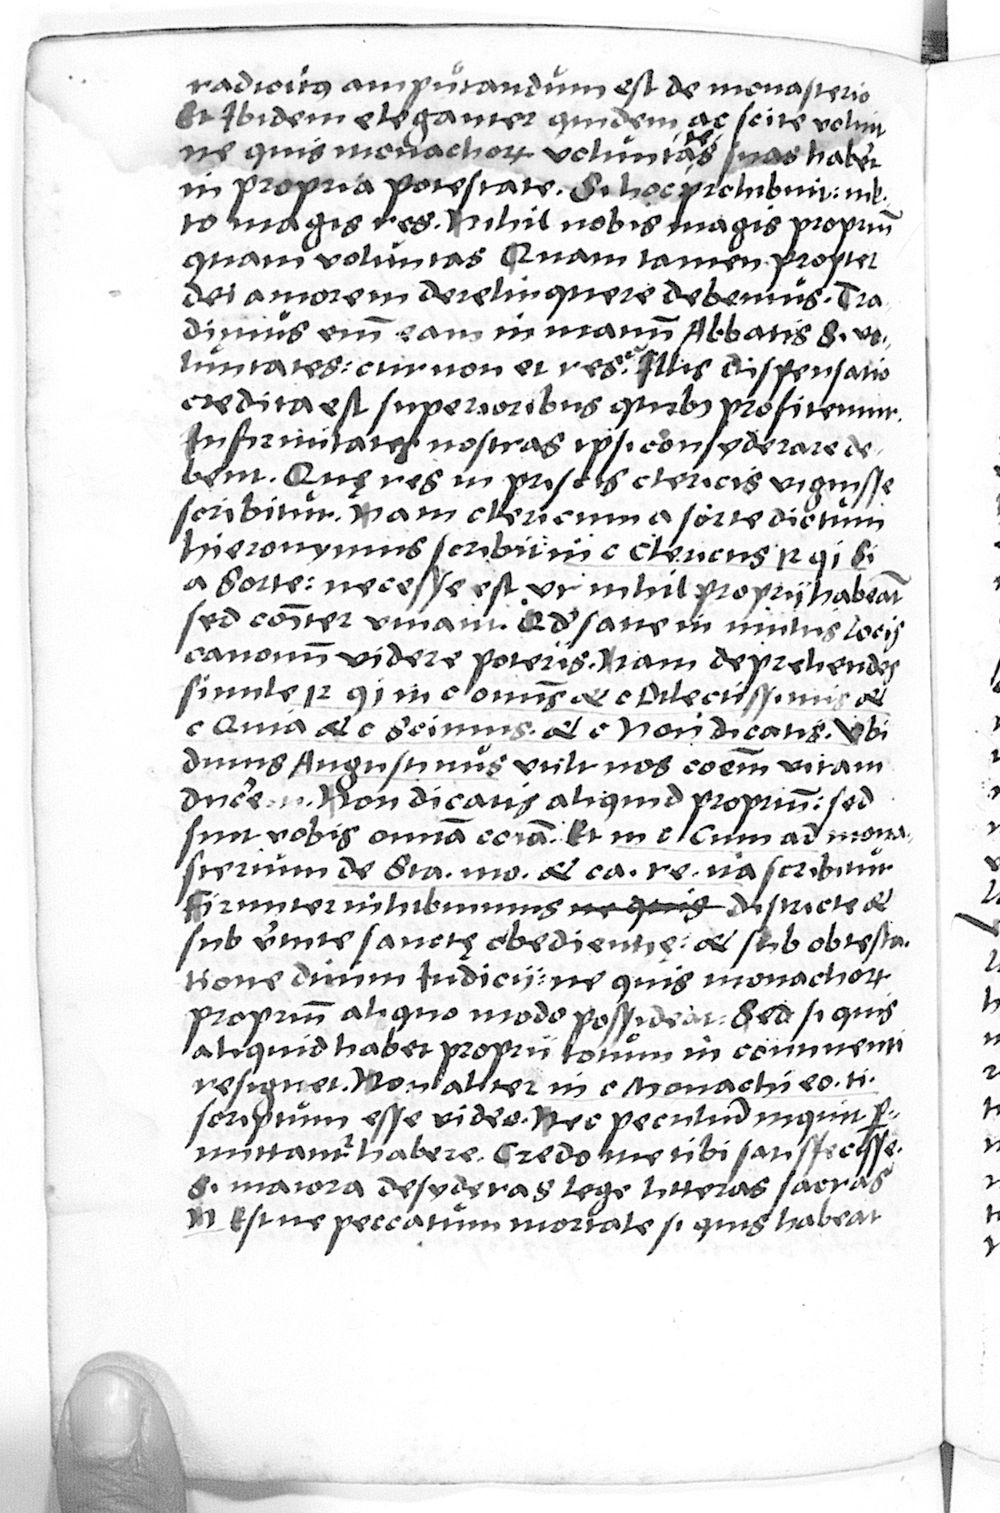 radicitus amputandum est de monasterio
Et Ibidem eleganter quidem ac scite voluit
ne quis monachorꝝ voluntates suas haberet
in propria potestate. Si hoc prohibuit: ml-
to magis res. Nihil nobis magis propriū
quam voluntas Quam tamen propter
dei amorem derelinquere debemus. Tra-
dimus enī eam in manū Abbatis Si vo-
luntates: cur non et res? Illis dispensatio
credita est superioribus quibꝫ profitemur.
Infirmitates nostras ipsi consyderare de-
bent. Quę res in priscis clericis viguisse
scribitur. Nam clericum a sorte dictum
hieronymus scribit in c Clericus 12 q i Si
a Sorte: necesse est vt nihil proprij habeāt
sed cōiter viuant. Qd sane in multis locis
canonū videre poteris. Nam deprehendes
simile 12 q i in c omīs & c Dilectissimis &
c Quia & c Scimus. & c Non dicatis. Vbi
diuus Augustinus vult nos coēm vitam
ducere. Non dicatis aliquid propriū: sed
sint vobis omīa cōia. Et in c Cum ad mona-
sterium de Sta. mo. & ca. re. ita scribitur
Firmiter inhibemus ne quis districte &
sub virtute sanctę obedientię: & sub obtesta-
tione diuini Iudicij: ne quis monachorꝝ
propriū aliquo modo possideat: Sed si quis
aliquid habet proprii totum in continenti
resignet. Non aliter in c Monachi eo. ti.
scriptum esse video. Nec peculiū inquit p-
mittant habere. Credo me tibi satisfecisse.
Si maiora desyderas lege litteras sacras
N Estne peccatum mortale si quis habeat